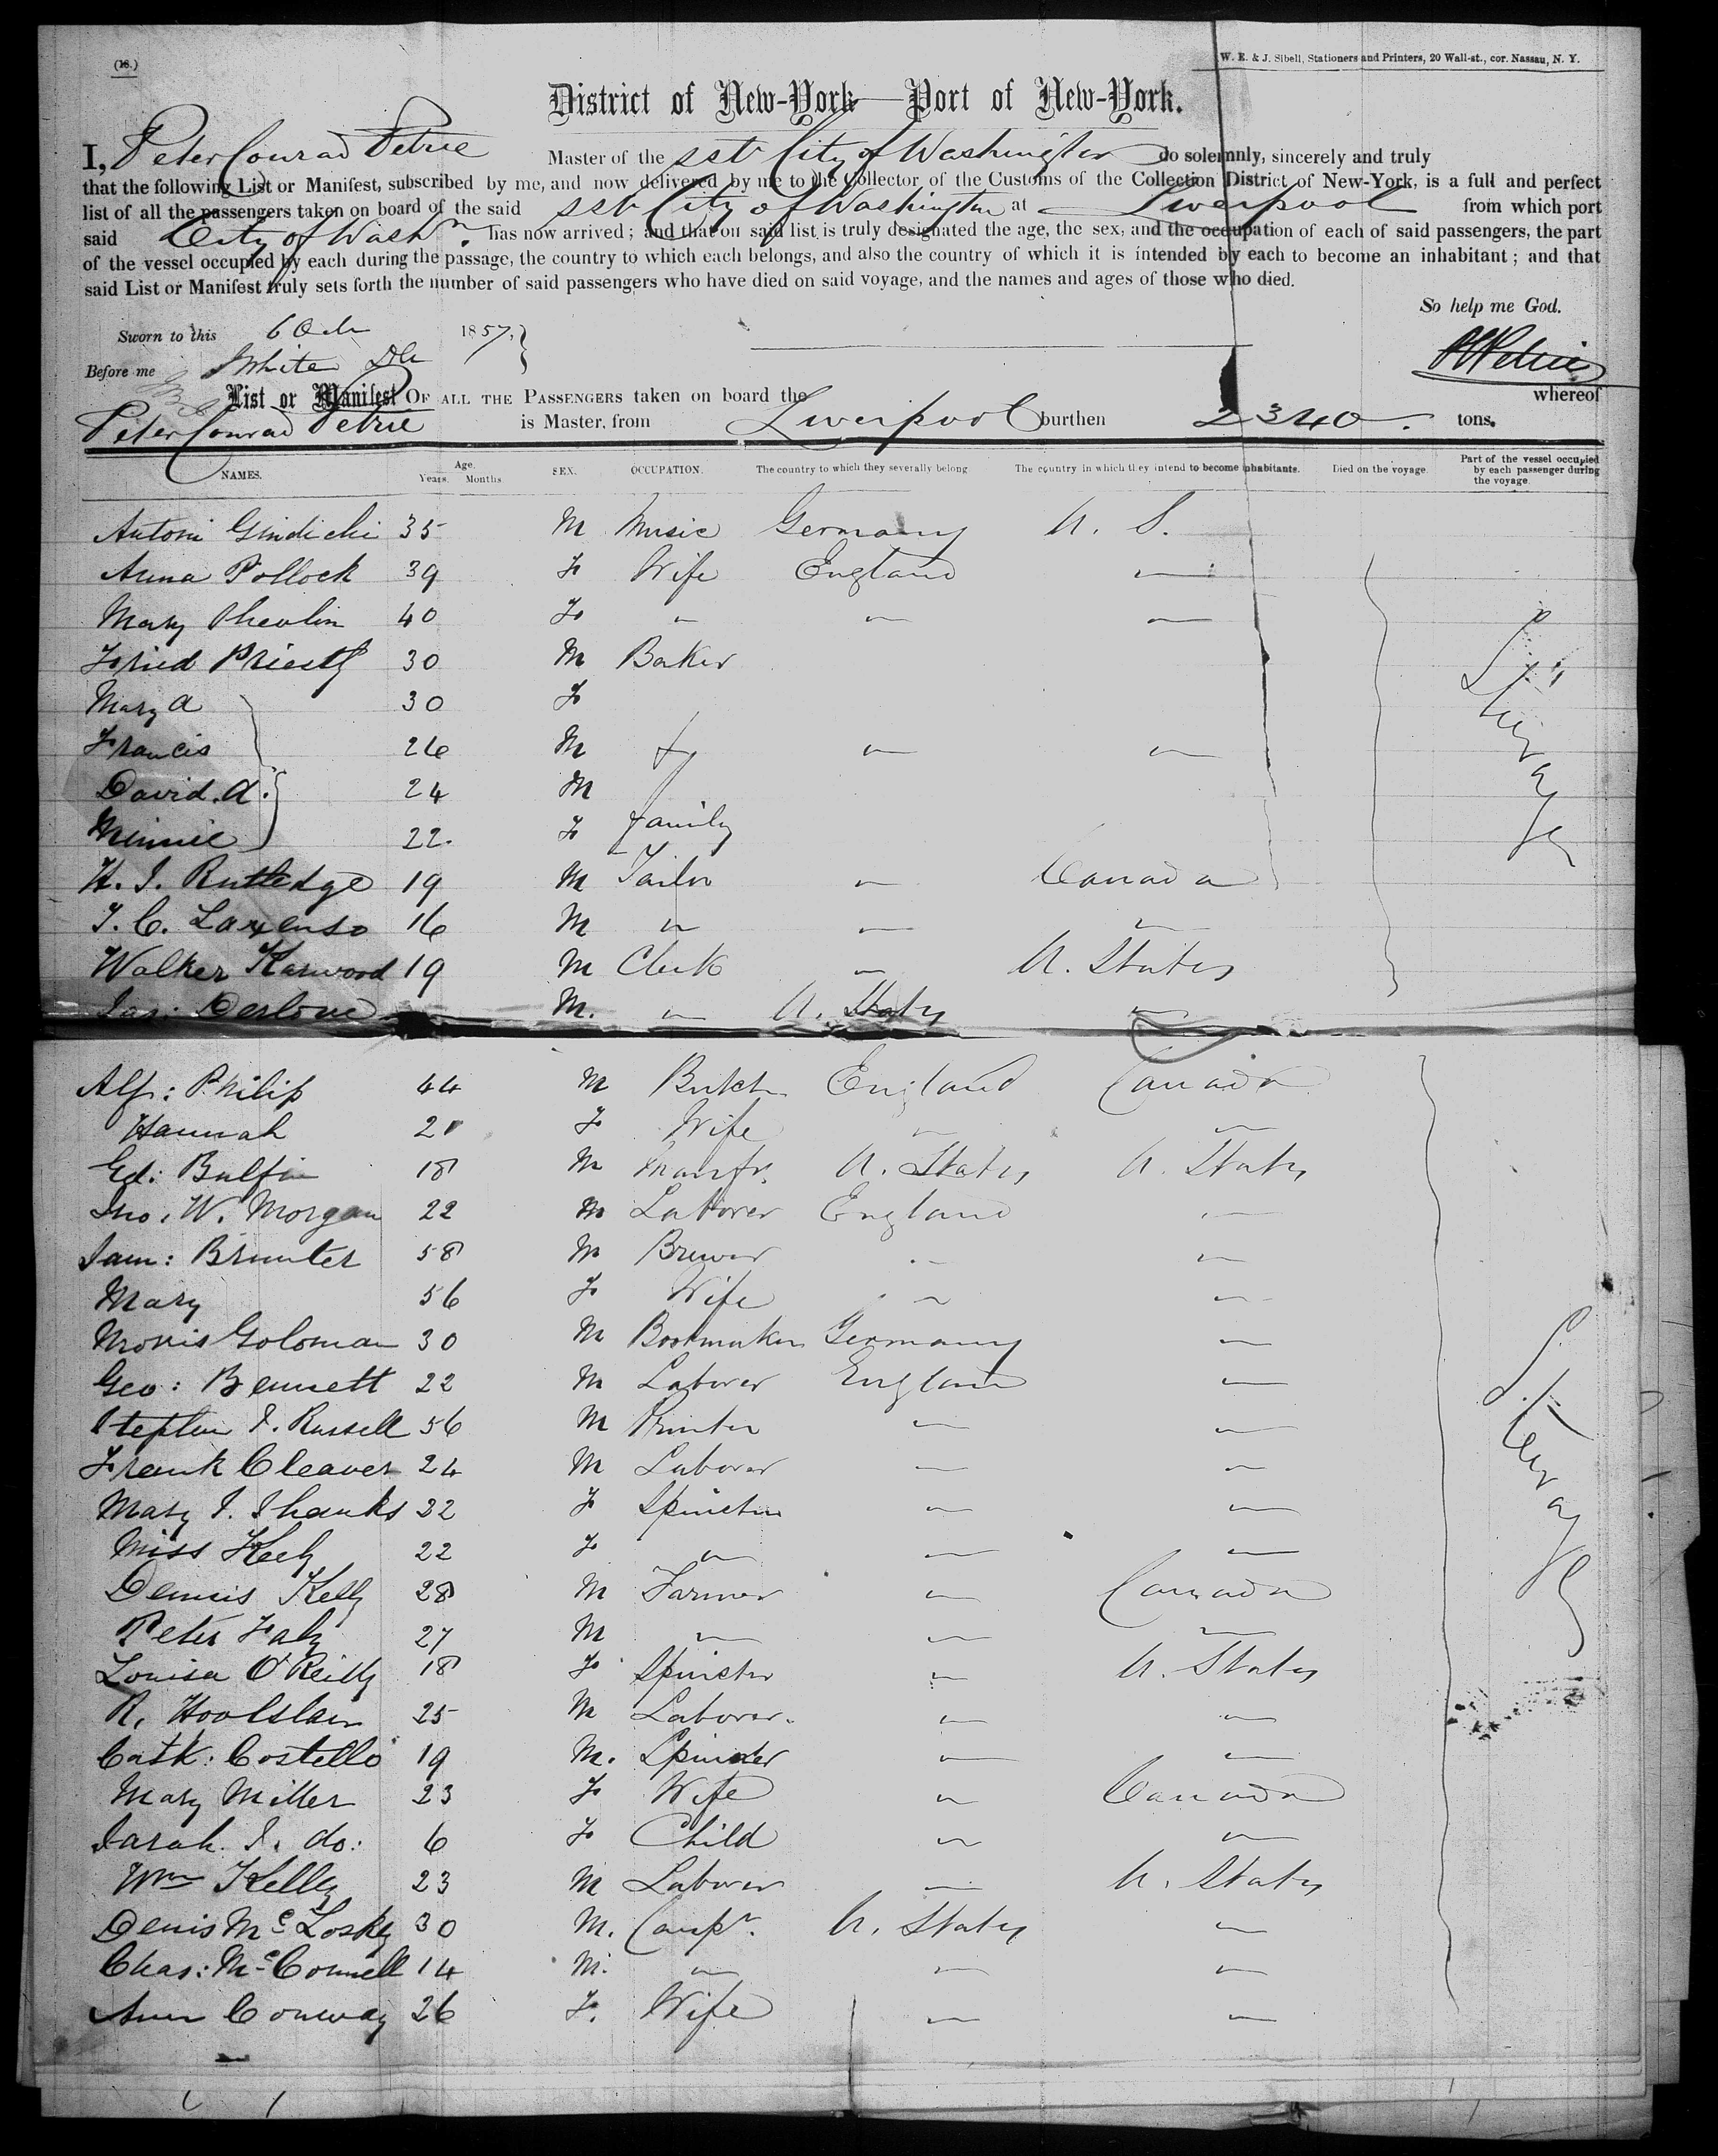 (18.)
W. E. & J. Sibell, Stationers and Printers, 20 Wall-st., cor. Nassau, N. Y.
District of New-York—Port of New-York.
I, Peter Conrad Petrie Master of the SSr City of Washington do solemnly, sincerely and truly
that the following List or Manifest, subscribed by me, and now delivered by me to the Collector of the Customs of the Collection District of New-York, is a full and perfect
list of all the passengers taken on board of the said SSr City of Washington at Liverpool from which port
said City of Washn. has now arrived; and that on said list is truly designated the age, the sex, and the occupation of each of said passengers, the part
of the vessel occupied by each during the passage, the country to which each belongs, and also the country of which it is intended by each to become an inhabitant; and that
said List or Manifest truly sets forth the number of said passengers who have died on said voyage, and the names and ages of those who died.
So help me God.
Sworn to this 6 Oct 1857.
Before me White
List or Manifest OF ALL THE PASSENGERS taken on board the whereof
Peter Conrad Petrie is Master, from Liverpool burthen 2340. tons.
NAMES. Age. Years. Months SEX. OCCUPATION. The country to which they severally belong The country in which they intend to become inhabitants. Died on the voyage. Part of the vessel occupied by each passenger during the voyage.
Antoni 35 M Music Germany U. S.
Anna Pollock 39 F Wife England —
Mary 40 F " — —
Fried Priestly 30 M Baker
Mary A 30 F
Francis 26 M — —
David. A. 24 M
Minnie 22. F family
Steerage
H. I. Rutledge 19 M Tailor — Canada
16 M " — —
Walker Harwood 19 M Clerk — U. States
Jas: M. — U. States —
Alf: Philip 44 M Butch England Canada
Hannah F Wife — —
Ed: 18 M Manfr. U. States U. States
Jno. W. Morgan 22 M Laborer England —
Sam: Brunter 58 M Brewer — —
Mary 56 F Wife — —
Morris Goloman 30 M Bootmaker Germany —
Geo: Bennett 22 M Laborer England —
Stephen I. Russell 56 M Printer — —
Frank Cleaver 24 M Laborer — —
Mary I. Shanks 22 F Spinster — —
Steerage
Miss 22 F " — —
Dennis Kelly 28 M Farmer — Canada
Peter 27 M — — —
Louisa O'Reilly 18 F Spinster — U. States
R. 25 M Laborer. — —
Cath: Costello 19 M. Spinster — —
Mary Miller 23 F Wife — Canada
Sarah I. do: 6 F Child — —
Wm Kelley 23 M Laborer — U. States
Denis McLosky 30 M. Carpr. U. States —
Chas: McConnell 14 M. — — —
Ann Conway 26 F. Wife — —